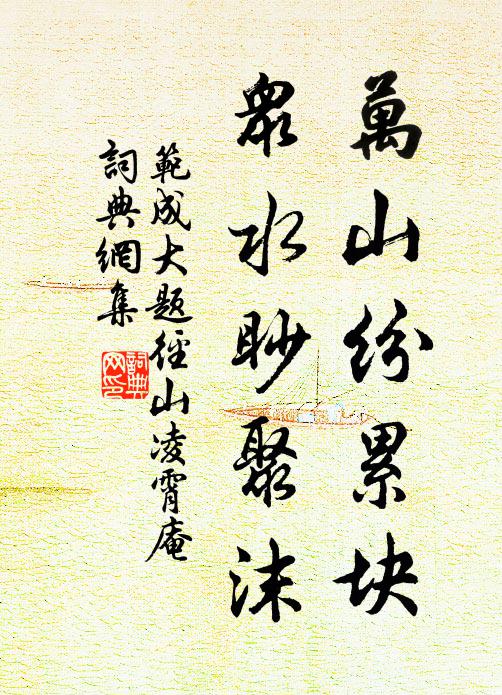 萬山紛累块
衆水眇聚沫
範成大题徑山凌霄庵
詞典網集
詞典网印